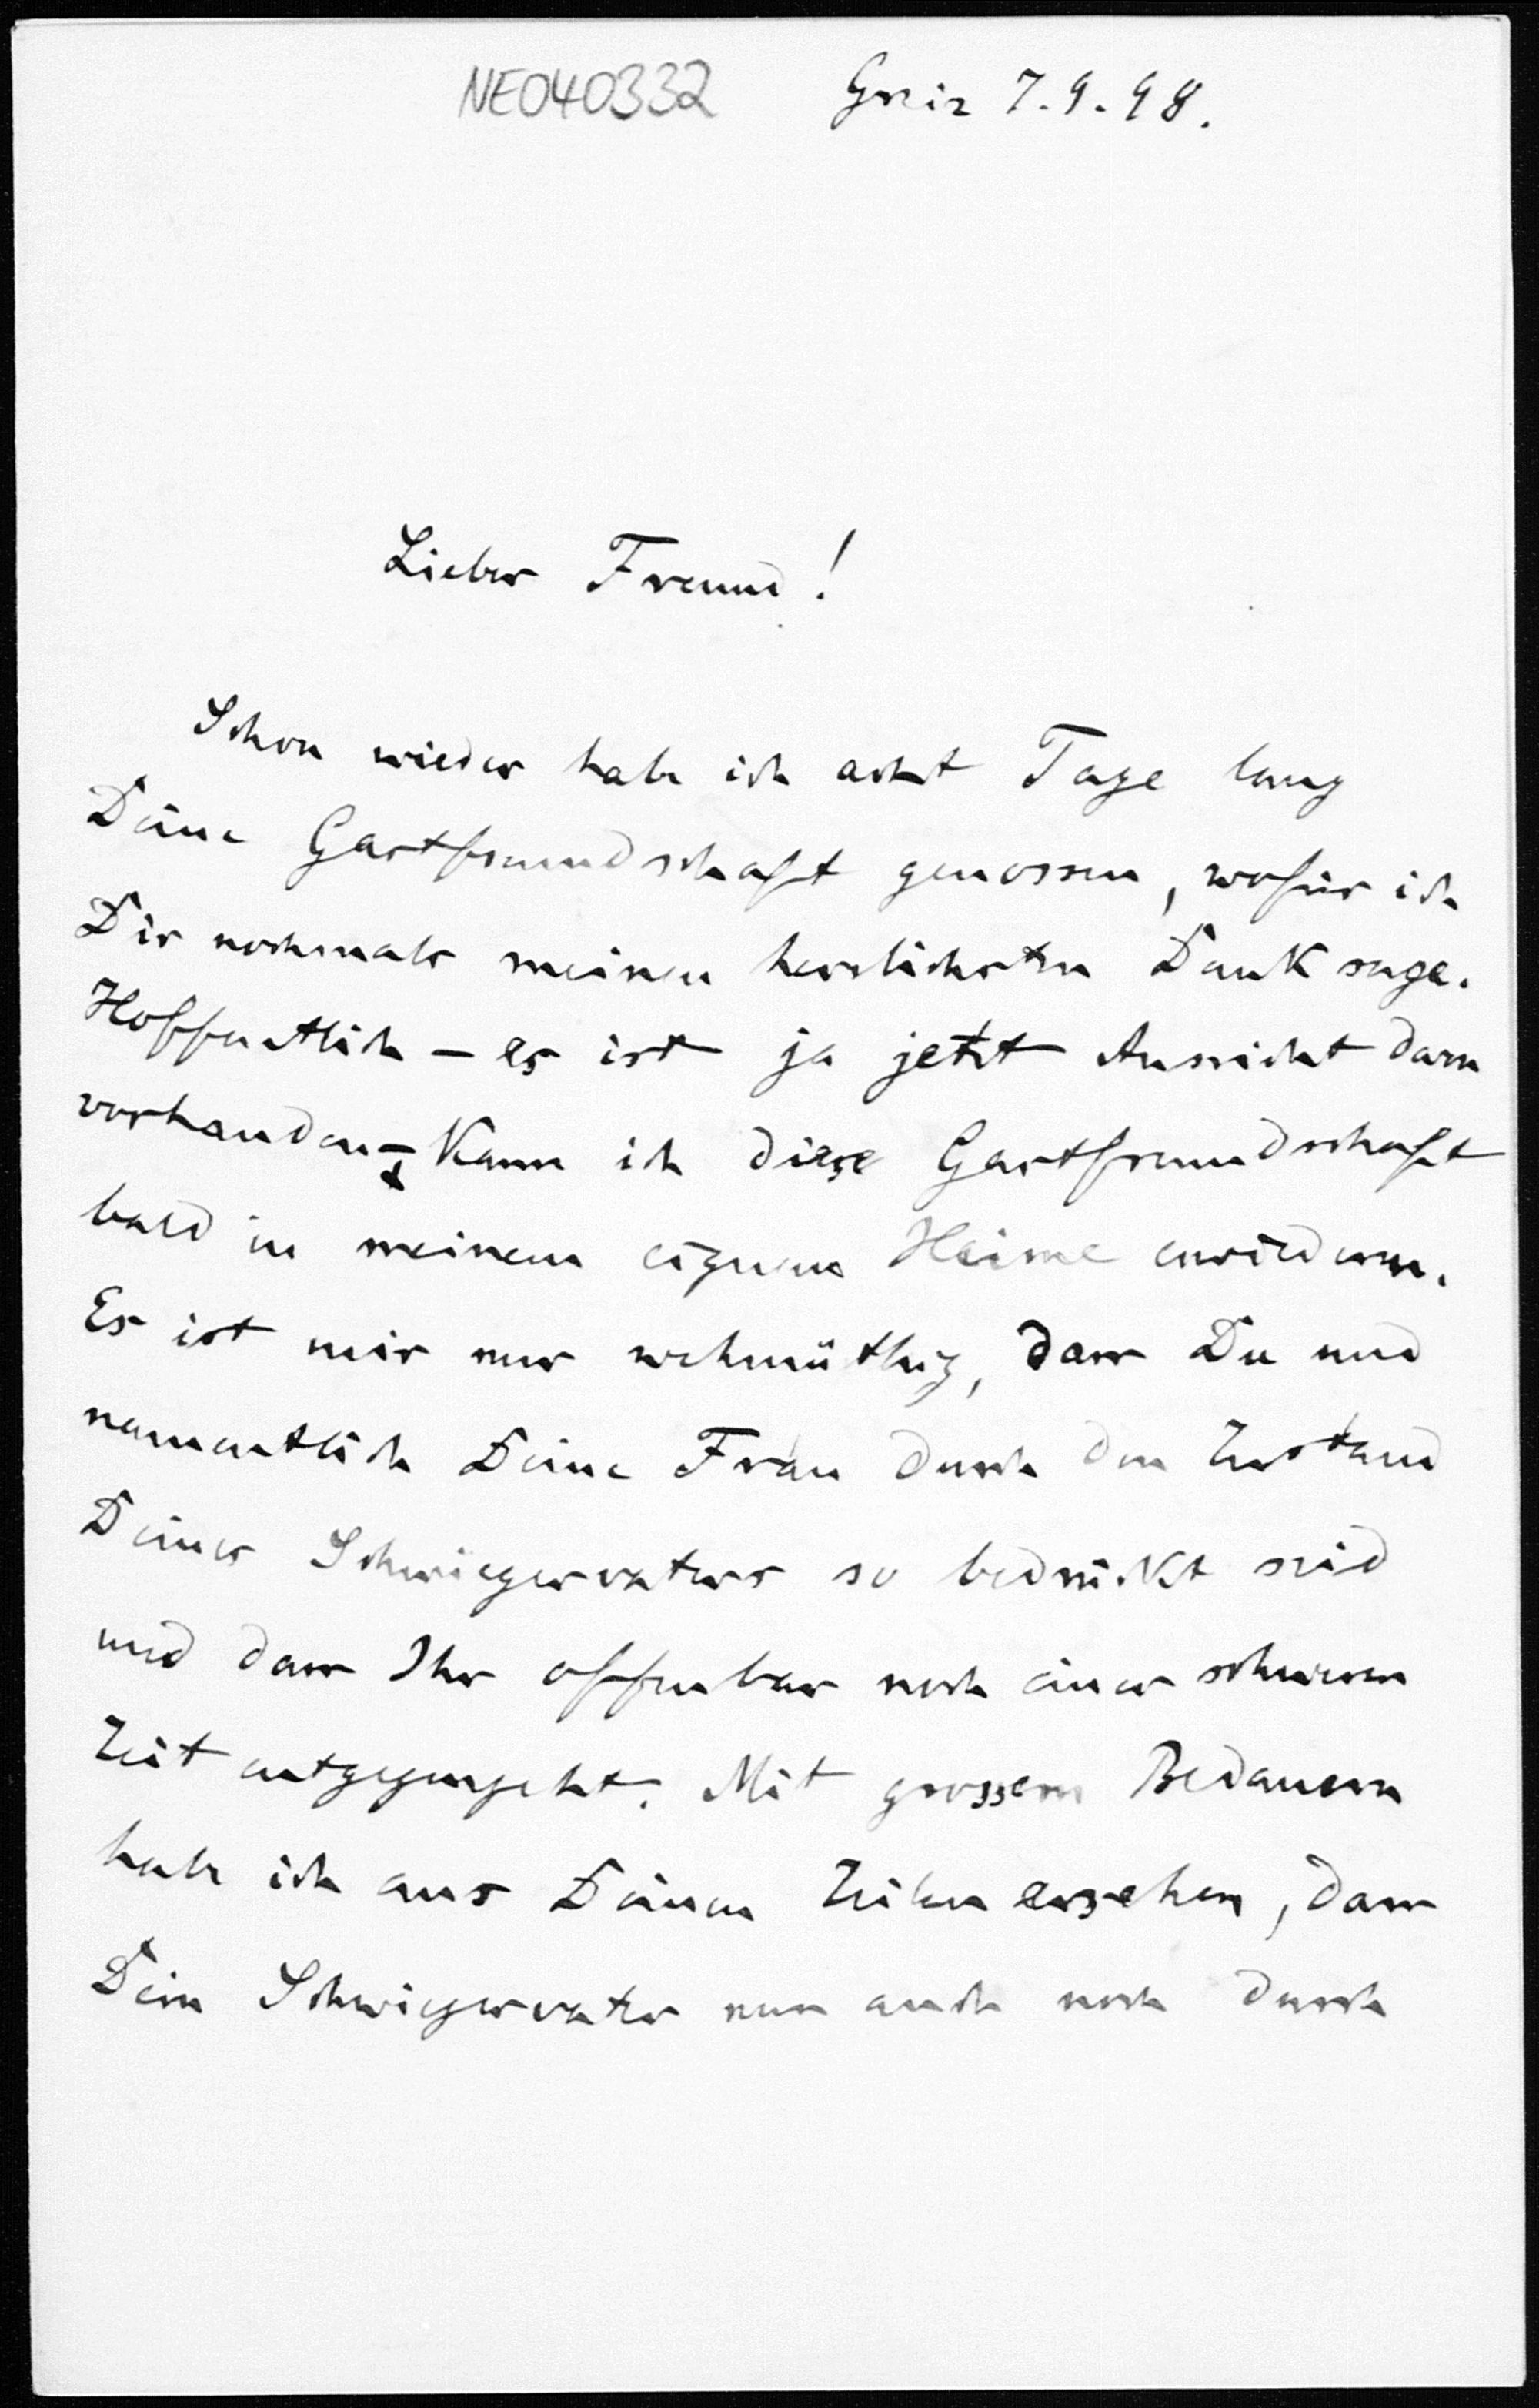 NE040332 Greiz 7.9.98.
Lieber Freund!
Schon wieder habe ich acht Tage lang
Deine Gastfreundschaft genossen, wofür ich
Dir nochmals meinen herzlichsten Dank sage.
Hoffentlich – es ist ja jetzt Aussicht dazu
vorhanden – kann ich diese Gastfreundschaft
bald in meinem eignen Heime erwidern.
Es ist mir nur wehmüthig, dass Du und
namentlich Deine Frau durch den Zustand
Deines Schwiegervaters so bedrückt seid
und dass Ihr offenbar noch einer schweren
Zeit entgegengeht. Mit grossem Bedauern
habe ich aus Deinen Zeilen ersehen, dass
Dein Schwiegervater nun auch noch durch